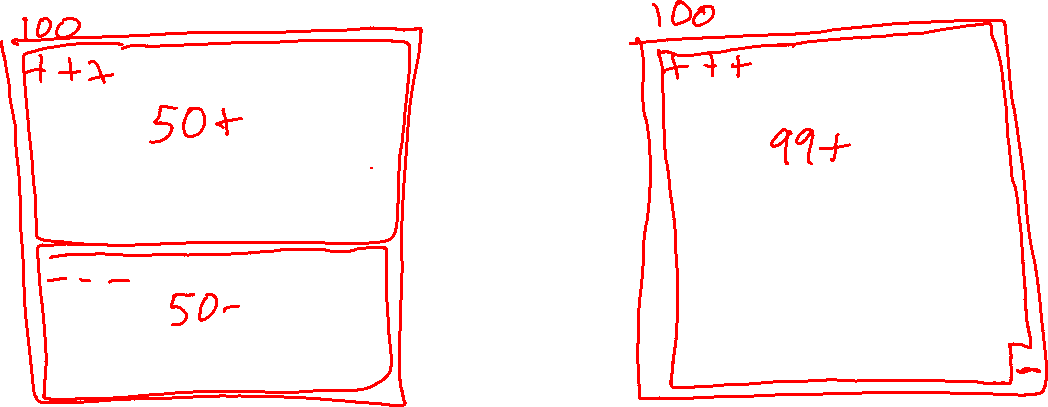 100
+++
50+
---
50-
100
+++
99+
-